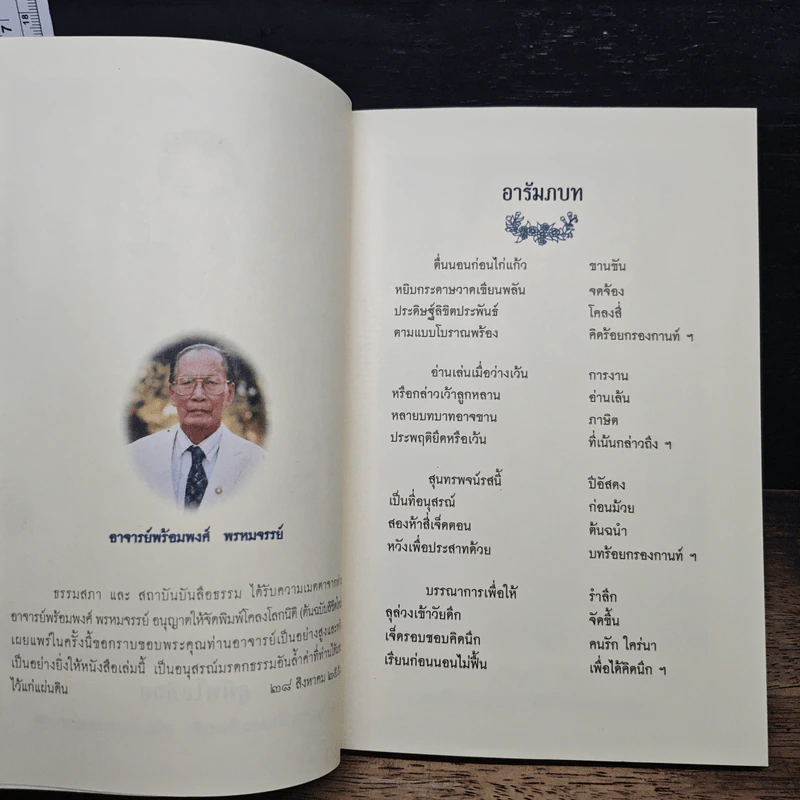 17
18
อาจารย์พร้อมพงศ์ พรหมจรรย์
ธรรมสภา และ สถาบันบันลือธรรม ได้รับความเมตตาจาก
อาจารย์พร้อมพงศ์ พรหมจรรย์ อนุญาตให้จัดพิมพ์โคลงโลกนิติ
เผยแพร่ในครั้งนี้ขอกราบขอบพระคุณท่านอาจารย์เป็นอย่างสูงและ
เป็นอย่างยิ่งให้หนังสือเล่มนี้ เป็นอนุสรณ์มรดกธรรมอันล้ำค่าที่ท่าน
ไว้แก่แผ่นดิน ๒๘ สิงหาคม
อารัมภบท
ตื่นนอนก่อนไก่แก้ว ขานขัน
หยิบกระดาษวาดเขียนพลัน จดจ้อง
ประดิษฐ์ลิขิตประพันธ์ โคลงสี่
ตามแบบโบราณพร้อง คิดร้อยกรองกานท์ ฯ
อ่านเล่นเมื่อว่างเว้น การงาน
หรือกล่าวเว้าลูกหลาน อ่านเล้น
หลายบทบาทอาจขาน ภาษิต
ประพฤติยึดหรือเว้น ที่เน้นกล่าวถึง ฯ
สุนทรพจน์รสนี้ ปีอัสดง
เป็นที่อนุสรณ์ ก่อนม้วย
สองห้าสี่เจ็ดตอน ต้นฉนำ
หวังเพื่อประสาทด้วย บทร้อยกรองกานท์ ฯ
บรรณาการเพื่อให้ รำลึก
ลุล่วงเข้าวัยดึก จัดขึ้น
เจ็ดรอบชอบคิดนึก คนรัก ใคร่นา
เรียนก่อนนอนไม่ฟื้น เพื่อได้คิดนึก ฯ